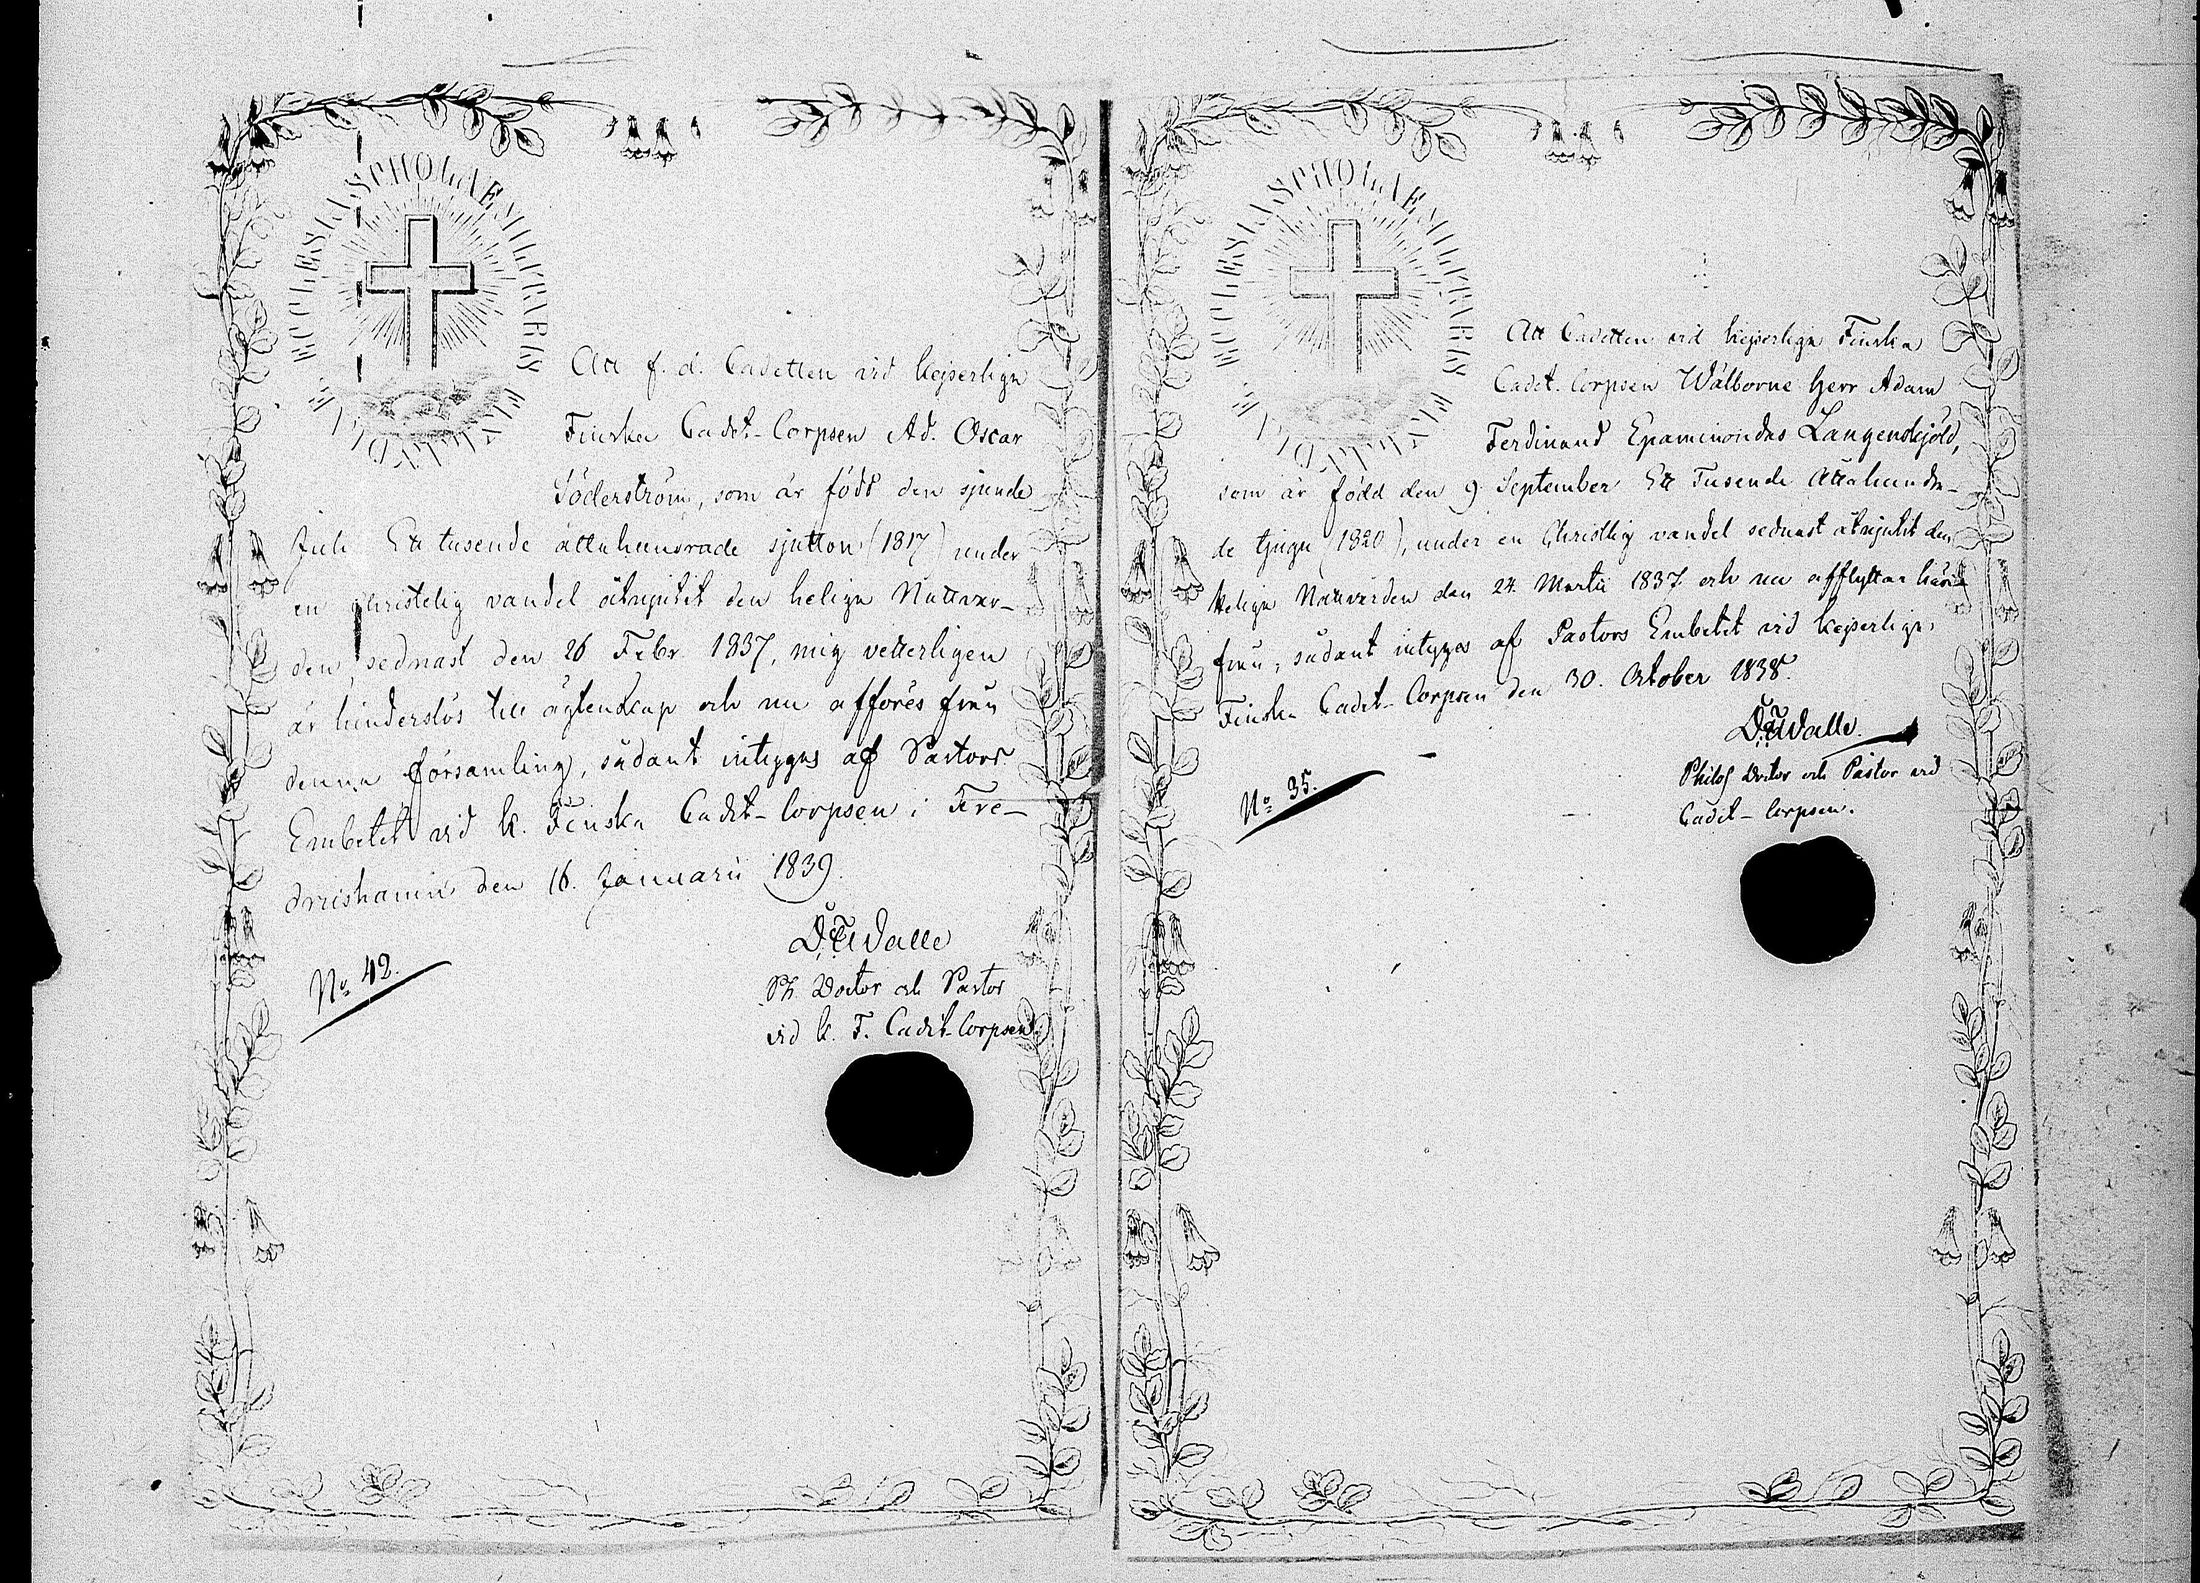 ECCLESIA SCHOLAE MILITARIS
Att f. d. Cadetten vid Kejserliga
Finska Cadet-Corpsen Ad. Oscar
Söderström, som är född den sjunde
Juli Ett tusende åttahundrade sjutton (1817) under
en christelig vandel åtnjutit den heliga Nattvar-
den sednast den 26 Febr. 1837, mig veterligen
är hinderslös till ägtenskap och nu afföres från
denna församling, sådant intygas af Pastors
Embetet vid K. Finska Cadet-Corpsen i Fre-
drickshamn den 16. Januarii 1839.
Walle
Ph. Doctor och Pastor
vid K. F. Cadet-Corpsen.
No 42.
ECCLESIA SCHOLAE MILITARIS
Att Cadetten vid Kejserliga Finska
Cadet-Corpsen Wälborne Herr Adam
Ferdinand Epaminondas Langenskjöld,
som är född den 9. September Ett Tusende Åttahundra-
de tjugu (1820), under en Christlig vandel sednast åtnjutit den
Heliga Nattvarden den 24. Martii 1837. och nu afflyttar häri-
från, sådant intygas af Pastors Embetet vid Kejserliga
Finska Cadet-Corpsen den 30. October 1838.
Walle.
Philos Doctor och Pastor vid
Cadet-Corpsen.
No 35.